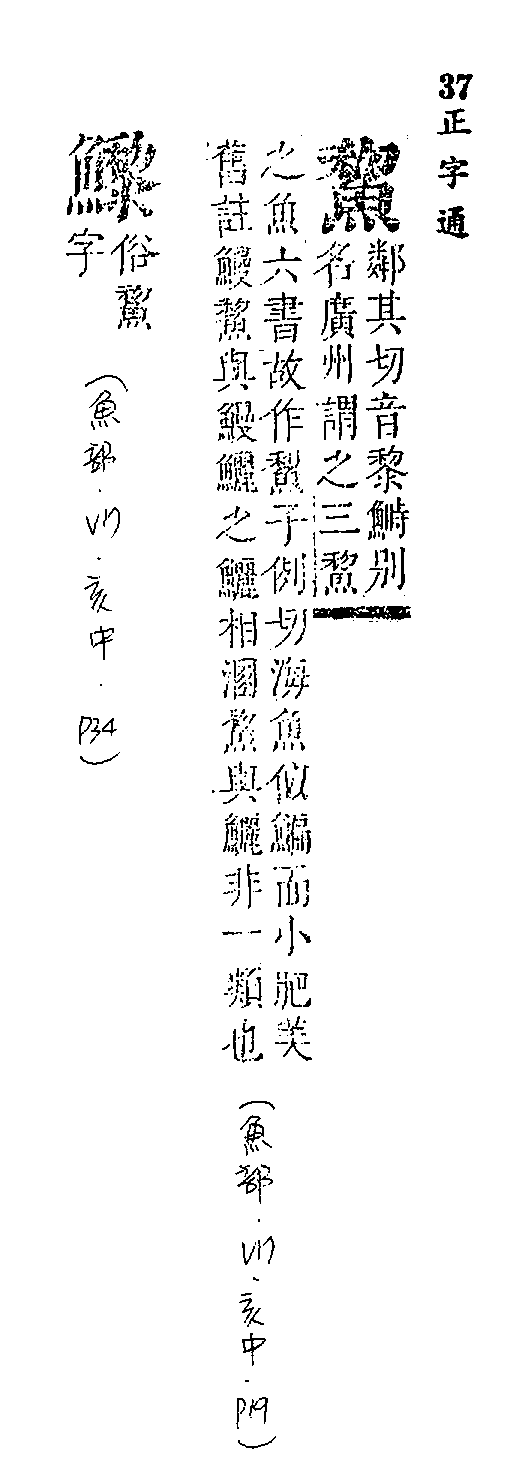 37正字通
鄰其切音黎鰣别
名廣州謂之三鯬
之魚六書故作鮆子例切海魚似鯿而小肥美
舊註鰻鯬與鰻鱺之鱺相溷鯬與鱺非一類也
(魚部.v17.亥中.P19)
鱺俗鯬
字
(魚部.v17.亥中.P34)